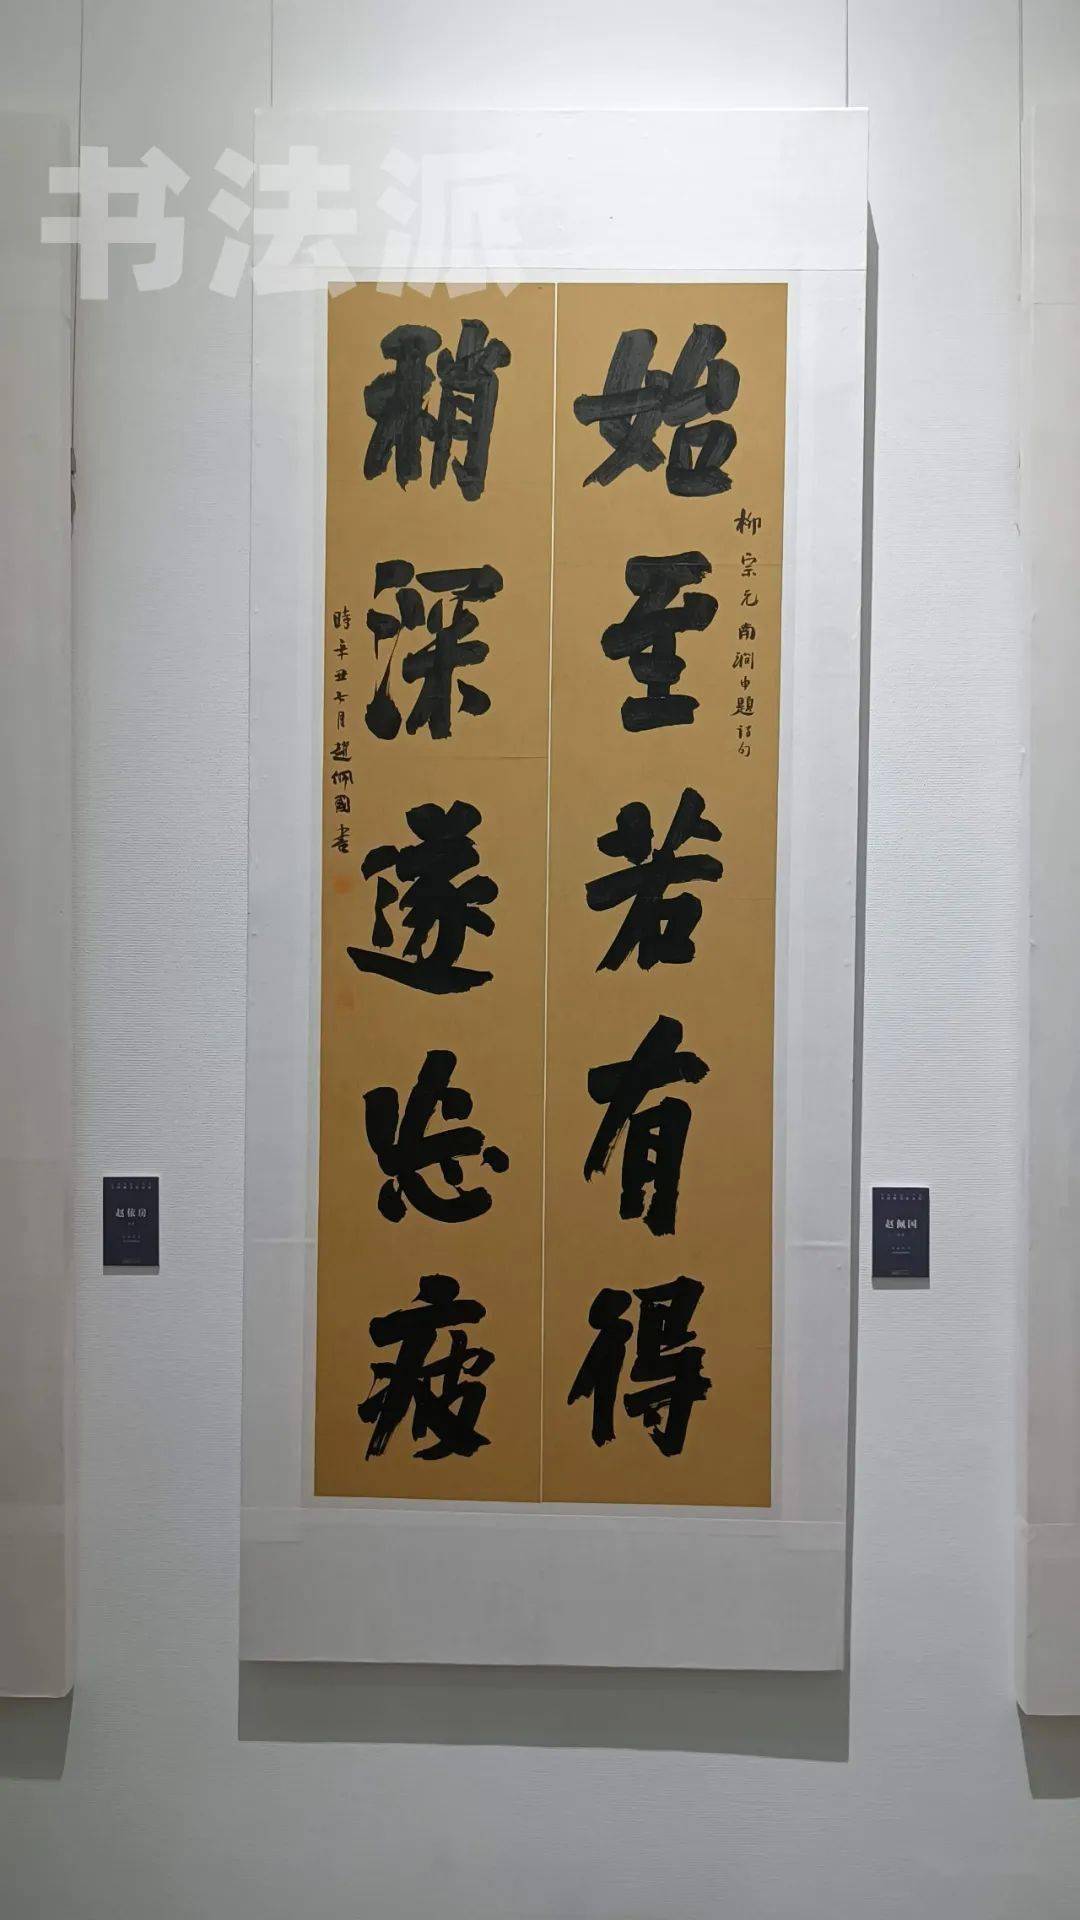 书法派
始至若有得
柳宗元南涧中题诗句
稍深遂忘疲
時辛丑七月趙佩國書
赵依房
赵佩国